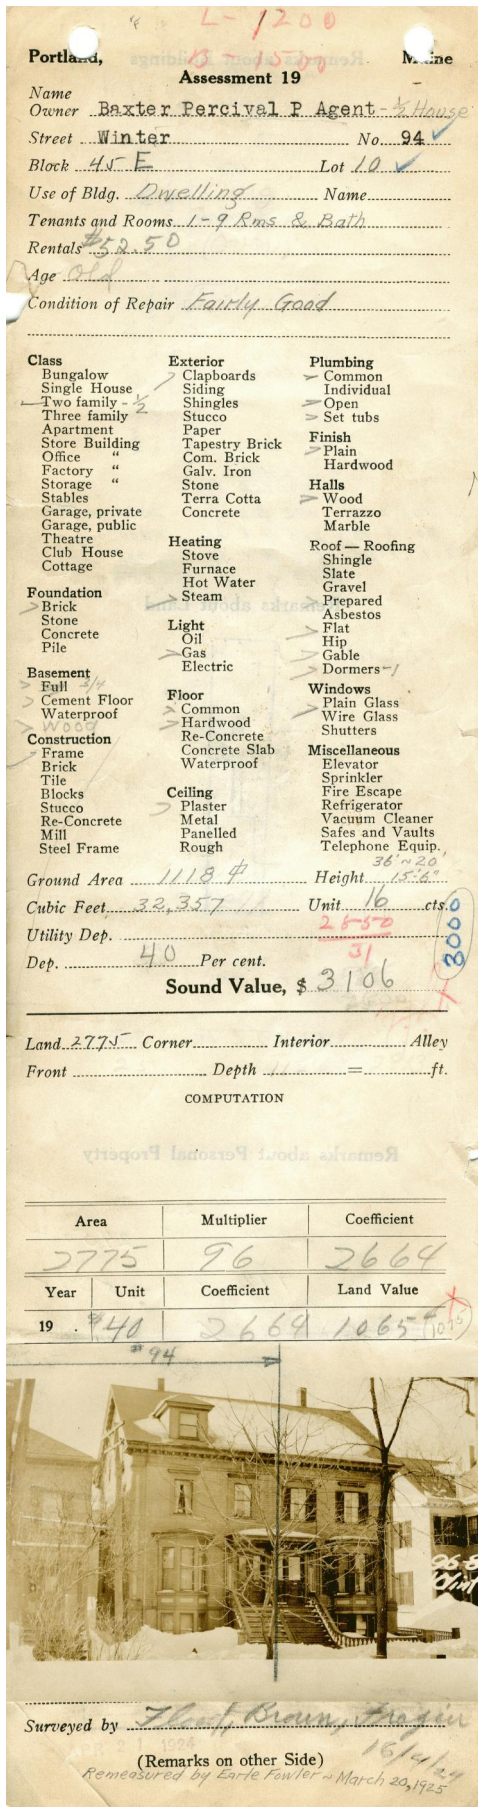 L-1200
B-1500
Portland, Maine
Assessment 19
Name
Owner Baxter Percival P Agent - ½ House
Street Winter No. 94
Block 45 E Lot 10
Use of Bldg. Dwelling Name
Tenants and Rooms 1-9 Rms & Bath
Rentals $52.50
Age Old
Condition of Repair Fairly Good
Class
Bungalow
Single House
Two family - ½
Three family
Apartment
Store Building
Office "
Factory "
Storage "
Stables
Garage, private
Garage, public
Theatre
Club House
Cottage
Foundation
Brick
Stone
Concrete
Pile
Basement
Full 3/4
Cement Floor
Waterproof
Wood
Construction
Frame
Brick
Tile
Blocks
Stucco
Re-Concrete
Mill
Steel Frame
Exterior
Clapboards
Siding
Shingles
Stucco
Paper
Tapestry Brick
Com. Brick
Galv. Iron
Stone
Terra Cotta
Concrete
Heating
Stove
Furnace
Hot Water
Steam
Light
Oil
Gas
Electric
Floor
Common
Hardwood
Re-Concrete
Concrete Slab
Waterproof
Ceiling
Plaster
Metal
Panelled
Rough
Plumbing
Common
Individual
Open
Set tubs
Finish
Plain
Hardwood
Halls
Wood
Terrazzo
Marble
Roof — Roofing
Shingle
Slate
Gravel
Prepared
Asbestos
Flat
Hip
Gable
Dormers-1
Windows
Plain Glass
Wire Glass
Shutters
Miscellaneous
Elevator
Sprinkler
Fire Escape
Refrigerator
Vacuum Cleaner
Safes and Vaults
Telephone Equip.
36'~20'
Ground Area 1118 Height 15'-6"
Cubic Feet 32,357 Unit 16 cts.
2550
Utility Dep.
31
Dep. 40 Per cent.
3000
Sound Value, $ 3106
Land 2775 Corner Interior Alley
Front Depth = ft.
COMPUTATION
Area Multiplier Coefficient
2775 96 2664
Year Unit Coefficient Land Value
19 . $40 2664 1065
1075
#94
Surveyed by Flood, Brown, Frazier
1924
16/4/24
(Remarks on other Side)
Remeasured by Earle Fowler ~ March 20, 1925